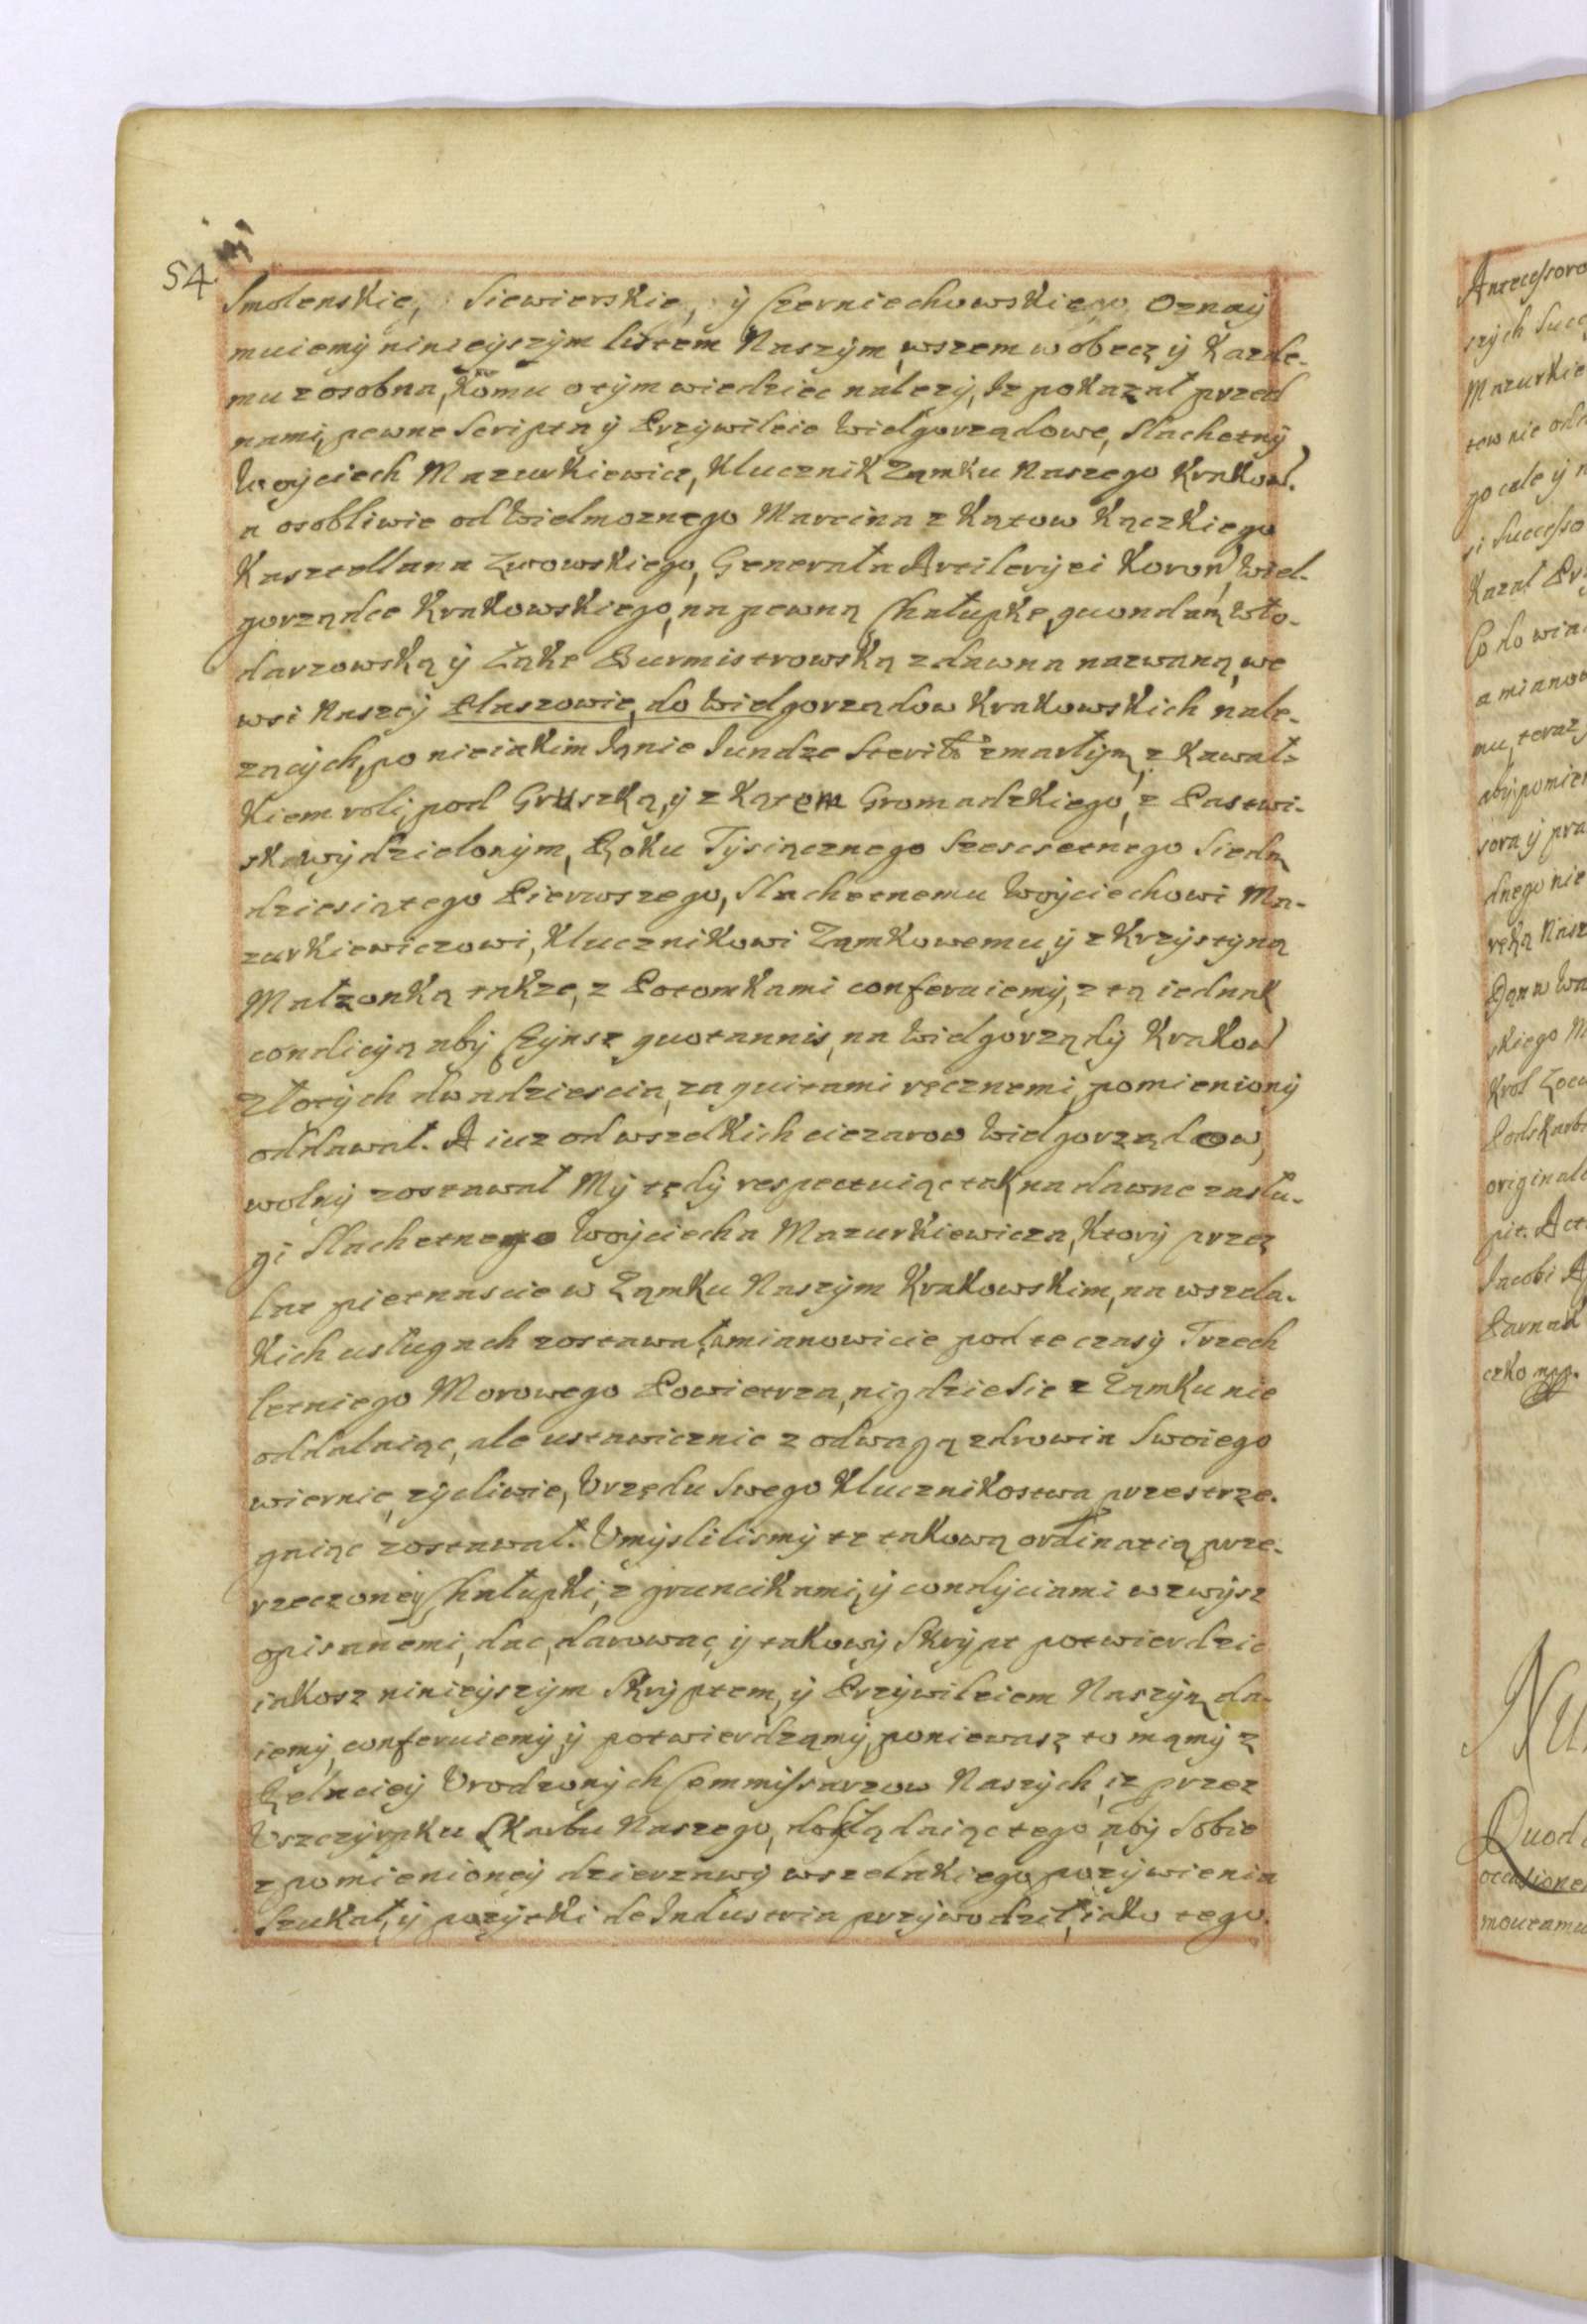 54.
Smolenskie, Siewierskie, ÿ Czerniechowskiego Oznaÿ
muiemÿ ninieÿszÿm listem Naszÿm, wszem wobecz ÿ Kazde-
mu zosobna, Komu otÿm wiedziec nalezÿ, Iz pokazał przed
nami, pewne Scripta ÿ Przÿwileie Wielgorządowe, Slachetnÿ
Woÿciech Mazurkiewicz, Klucznik Zamku Naszego Krakow.
a osobliwie od Wielmoznego Marcina z Kątow Kączkiego
Kasztellana Lwowskiego, Generała Artilerÿei Koron, Wiel-
gorządce Krakowskiego, na pewną Chałupke, quondam Wło-
darzowską ÿ Łąke Burmistrowską zdawna nazwaną, we
wsi Naszeÿ Płaszowie, do Wielgorządow Krakowskich nale-
zącÿch, po nieiakim Ianie Iundze Sterilr zmarłÿm, z Kawał-
kiem roli, pod Gruszką, ÿ z Kątem Gromadzkiego, z Pastwi-
ska wÿdzielonÿm, Roku Tÿsiącznego Szescsetnego Siedm
dziesiątego Pierwszego, Slachetnemu Woÿciechowi Ma-
zurkiewiczowi, Klucznikowi Zamkowemu, ÿ z Krzÿstÿną
Małzonką takze, z Potomkami conferuiemÿ, z tą iednak
condicÿą abÿ Czÿnsz quotannis, na Wielgorządÿ Krakow
złotÿch dwadziescia, za quitami ręcznemi, pomienionÿ
oddawał. A iuz od wszelkich ciezarow Wielgorządow,
wolnÿ zostawał Mÿ tedÿ respectuiąc tak na dawne zasłu-
gi Slachetnego Woÿciecha Mazurkiewicza, Ktorÿ przez
lat pietnascie w Zamku Naszÿm Krakowskim, na wszela-
kich usługach zostawał, amianowicie pod te czasÿ Trzech
letniego Morowego Powietrza, nigdzie Sie z Zamku nie
oddalaiąc, ale ustawicznie z odwagą zdrowia Swoiego
wiernie, zÿcliwie, Urzędu Swego Klucznikostwa przestrze-
gaiąc zostawał. Umÿslilismÿ te takową ordinatią prze-
rzeczoneÿ Chałupki, z gruncikami, ÿ condÿciami wzwÿsz
opisanemi, dac, darowac, ÿ takowÿ Skrÿpt potwierdzic
iakosz ninieÿszÿm Skrÿptem, ÿ Przÿwileiem Naszÿm da-
iemÿ, conferuiemÿ, ÿ potwierdzamÿ, poniewasz to mamÿ z
Relacieÿ Urodzonÿch Commissarzow Naszÿch, iz przez
Uszczÿrpku Skarbu Naszego, dokładaiąc tego, abÿ Sobie
z pomienioneÿ dzierzawÿ wszelakiego pozÿwienia
Szukał, ÿ pozÿtki de Industria przÿwodził, iako tego.